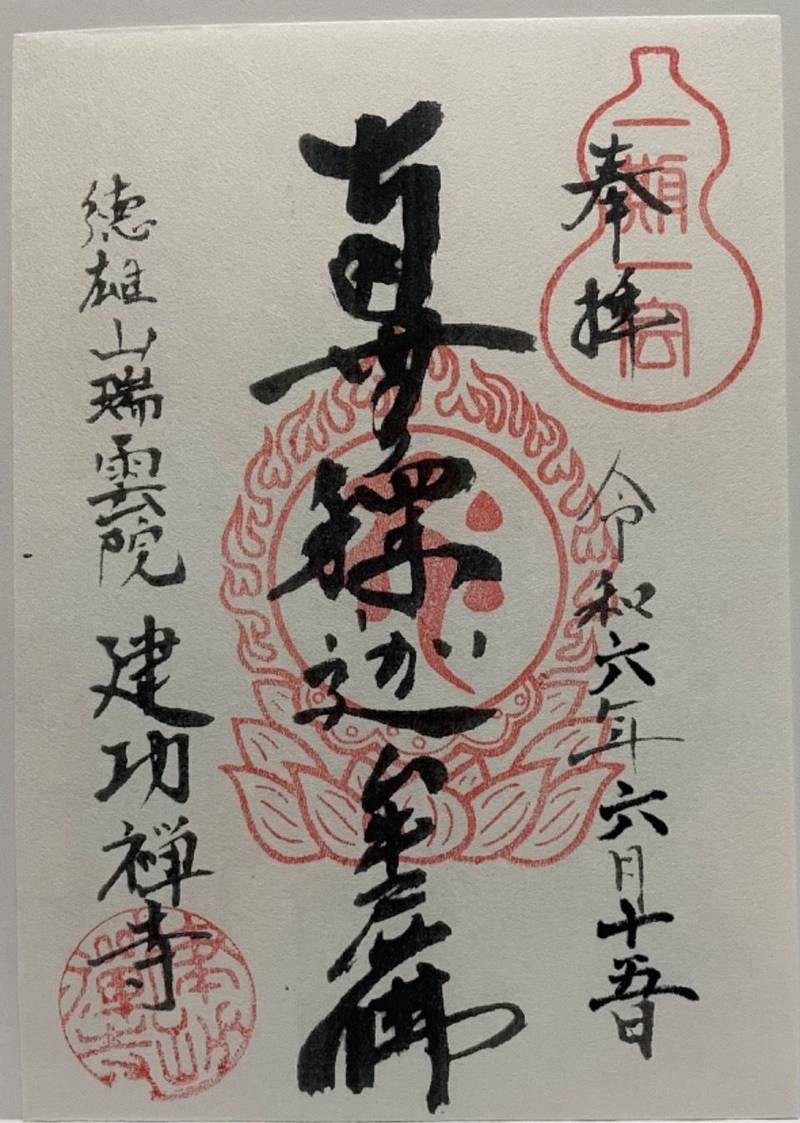 奉拝
一期一会
令和六年六月十五日
南無釋迦牟尼佛
徳雄山瑞雲院 建功禅寺
建功禪寺